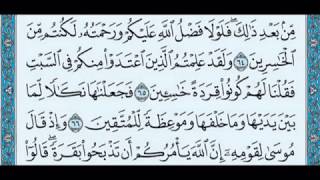 مِّنۢ بَعْدِ ذَٰلِكَ ۖ فَلَوْلَا فَضْلُ ٱللَّهِ عَلَيْكُمْ وَرَحْمَتُهُۥ لَكُنتُم مِّنَ
ٱلْخَٰسِرِينَ ٦٤ وَلَقَدْ عَلِمْتُمُ ٱلَّذِينَ ٱعْتَدَوْا۟ مِنكُمْ فِى ٱلسَّبْتِ
فَقُلْنَا لَهُمْ كُونُوا۟ قِرَدَةً خَٰسِـِٔينَ ٦٥ فَجَعَلْنَٰهَا نَكَٰلًا لِّمَا
بَيْنَ يَدَيْهَا وَمَا خَلْفَهَا وَمَوْعِظَةً لِّلْمُتَّقِينَ ٦٦ وَإِذْ قَالَ
مُوسَىٰ لِقَوْمِهِۦٓ إِنَّ ٱللَّهَ يَأْمُرُكُمْ أَن تَذْبَحُوا۟ بَقَرَةً ۖ قَالُوٓا۟